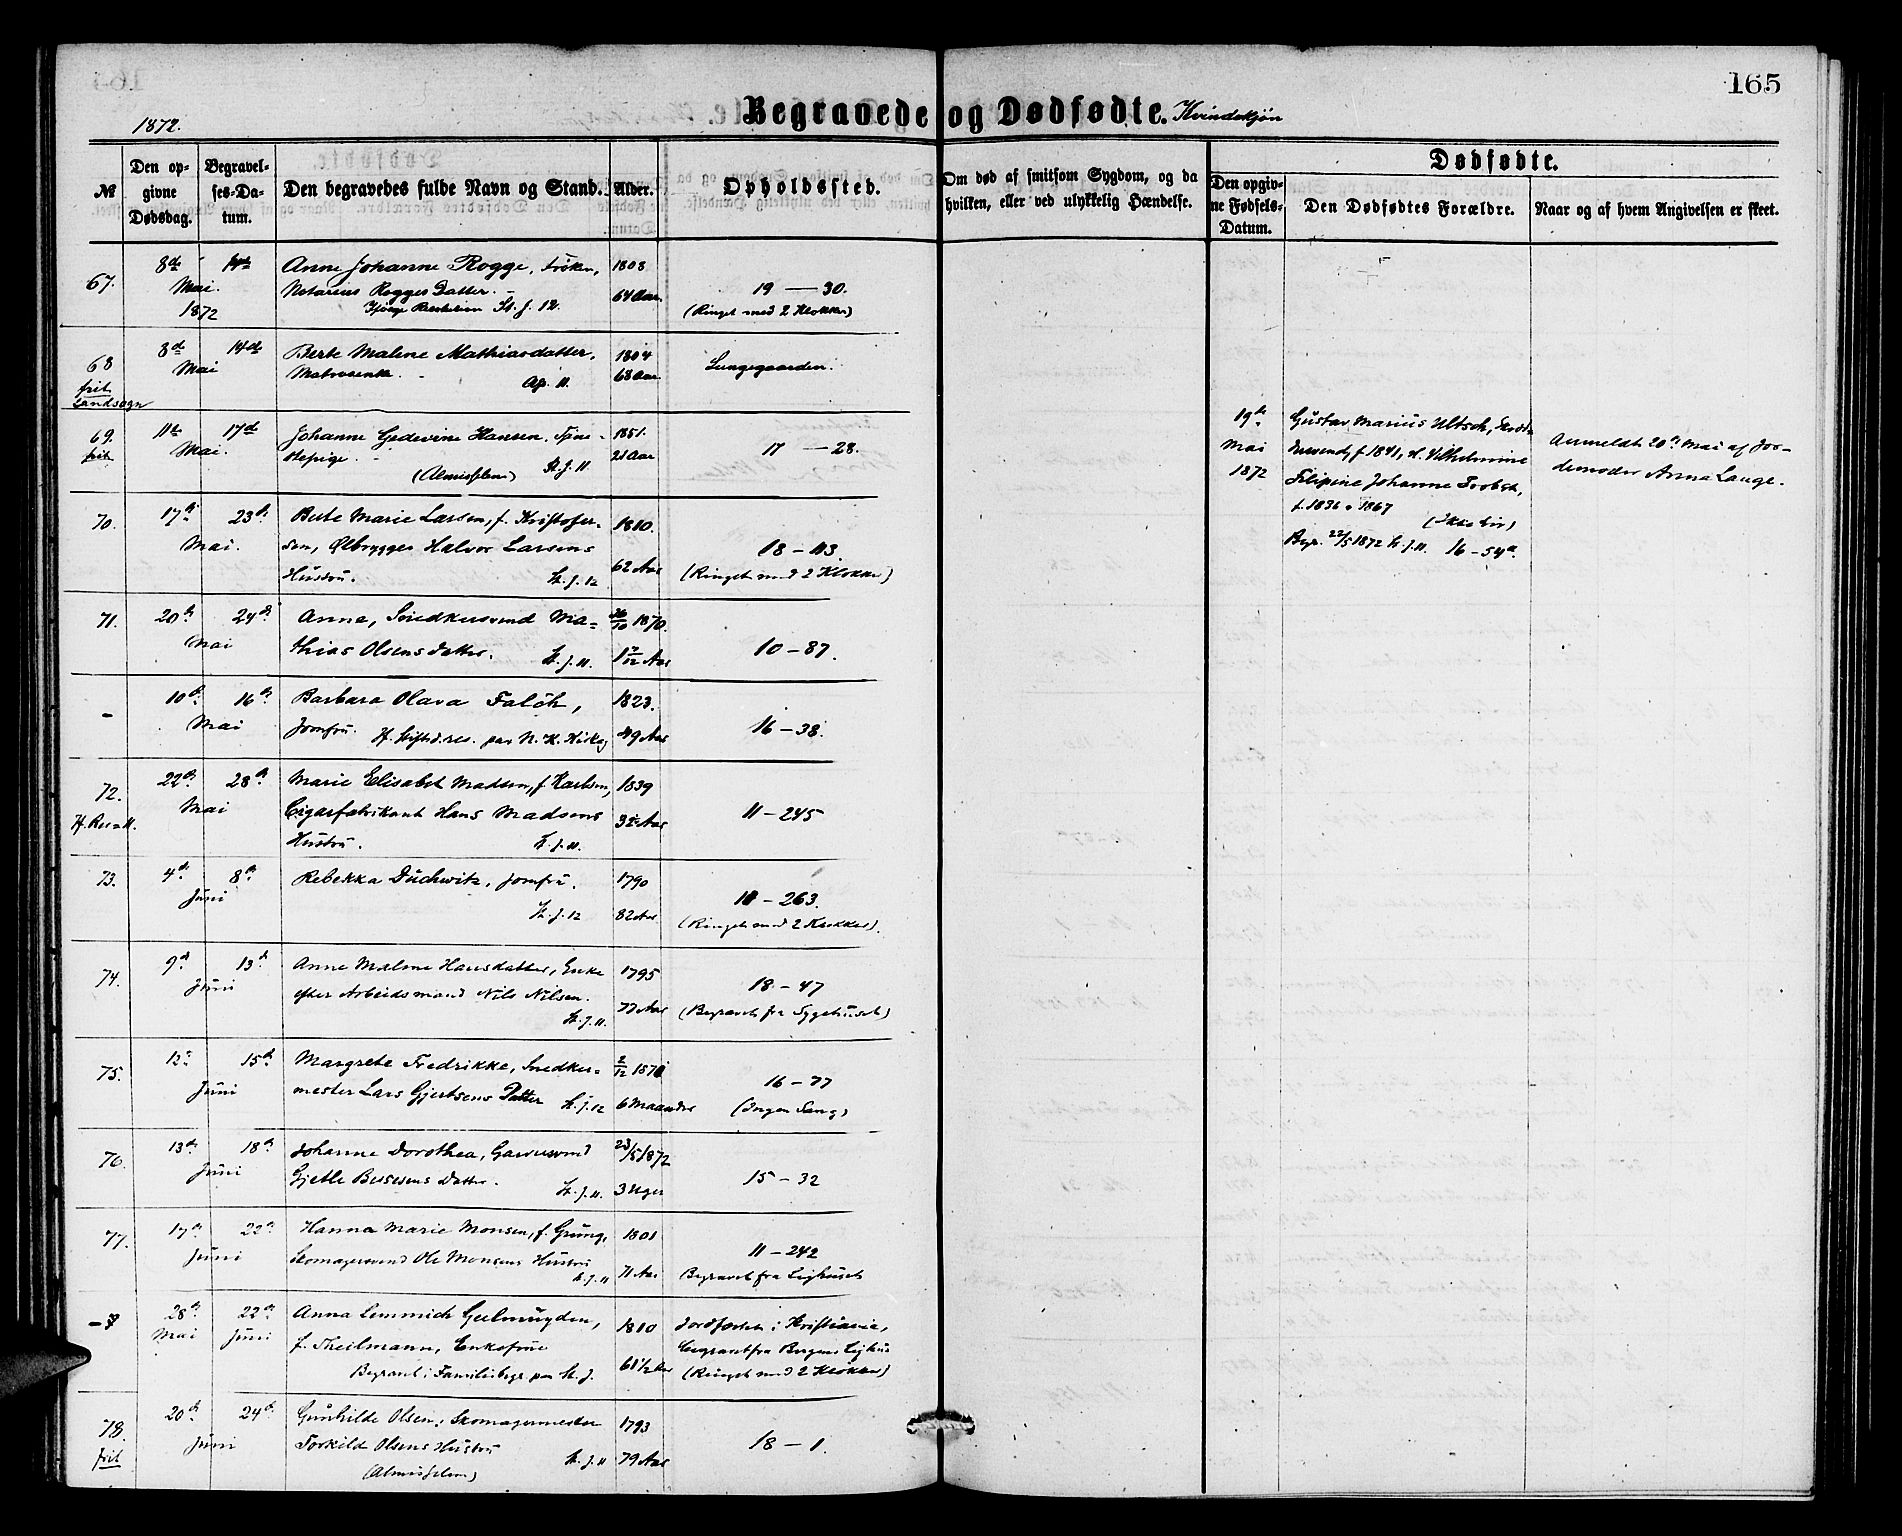 165
1872.
Begravede og Dødfødte. Kvindekjøn
№
Den op-
givne
Dødsdag.
Begravel-
ses-Da-
tum.
Den begravedes fulde Navn og Stand.
Alder.
Opholdssted.
Om død af smitsom Sygdom, og da
hvilken, eller ved ulykkelig Hændelse.
Dødfødte.
Den opgiv-
ne Fødsels-
Datum.
Den Dødfødtes Forældre.
Naar og af hvem Angivelsen er skeet.
67.
8de 14de
Mai.
1872
Anne Johanne Rogge, Frøken,
Notarius Rogges Datter.
St. J. 12.
1808
64 Aar.
19 — 30.
(Ringet med 2 Klokker)
68
frit
Landsogn
8de 14de
Mai
Berte Malene Mathiasdatter,
Matrosenke. Ap. 11.
1804
68 Aar
Lungegaarden.
69.
frit
11te 17de
Mai.
Johanne Gedevine Hansen. Tjene-
stepige.
(Almisselem) St. J. 11
1851.
21 Aar
17 — 28.
70.
17de 23de
Mai.
Berte Marie Larsen, f. Kristofer-
sen, Ølbrygger Halvor Larsens
Hustru. St. J. 12
1810.
62 Aar
18 – 113.
(Ringet med 2 Klokker)
71.
20de 24de
Mai
Anna, Snedkersvend Ma-
thias Olsens Datter. St. J. 11.
26/10 1870.
1 7/12 Aar
10 – 87.
-
10de 16de
Mai
Barbara Olava Falch,
Jomfru. Hf. Stiftd.res. paa N. K. Kirkeg
1823.
49 Aar
16 – 38.
72.
22de 28de
Mai
Marie Elisabet Madsen, f. Karlsen,
Cigarfabrikant Hans Madsens
Hustru. St. J. 11.
1839
32 Aar
11 – 245
73.
4de 8de
Juni
Rebekka Duchwitz, Jomfru.
St. J. 12
1790
82 Aar
18 – 263.
(Ringet med 2 Klokker).
74.
9de 13de
Juni
Anne Malene Hansdatter, Enke
efter Arbeidsmand Nils Nilsen.
St. J. 11.
1795
77 Aar
18 – 47
(Begravet fra Sygehuset)
75.
12te 15de
Juni
Margrete Fredrikke, Snedker-
mester Lars Gjertsens Datter St. J. 12
2/12 1871
6 Maaneder
16 – 77
(Ingen Sang)
76.
13de 18de
Juni
Johanne Dorothea, Garversvend
Gjetle Bessesens Datter. St. J. 11.
23/5 1872
3 Uger
15 – 32
77.
17de 22de
Juni
Hanna Marie Monsen, f. Grung,
Skomagersvend Ole Monsens Hustru
St. J. 11
1801
71 Aar
11 – 242
Begravet fra Lighuset
28de 22de
Mai Juni
Anna Lemmich Geelmuyden,
f. Theilmann, Enkefrue
Begravet i Familiebegr. paa St. J.
1810
61 1/2 Aar
Jordfæstet i Kristiania,
begravet fra Bergens Lighus
(Ringet med 2 Klokker)
78.
frit
20de 24de
Juni
Gunhilde Olsen, Skomagermester
Torkild Olsens Hustru St. J. 11
(Almisselem)
1793
79 Aar
18 – 1.
19de
Mai
1872
Gustav Marius Ultsch,
f. 1841, og Vilhelmine
Filipine Johanne Trobst,
f. 1836 g. 1867
Begr. 22/5 1872 St. J. 11. 16 – 54a.
Anmeldt 20de Mai af Jor-
demoder Anna Lange.